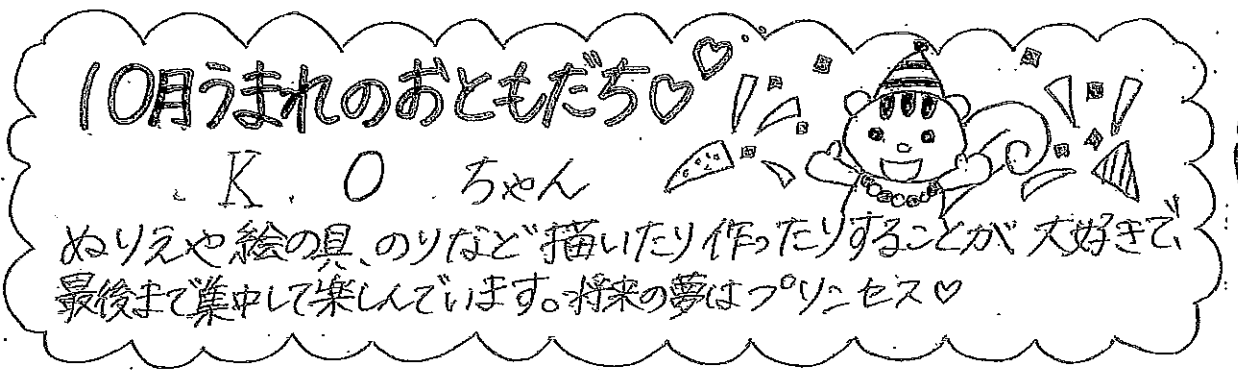 10月うまれのおともだち♡♡
K.O ちゃん
ぬりえや絵の具、のりなど描いたり作ったりすることが大好きで、
最後まで集中して楽しんでいます。将来の夢はプリンセス♡